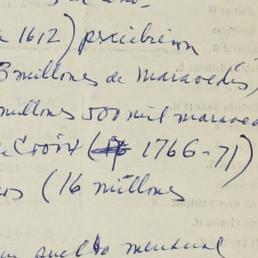 1612) percibieron
3 millones de Maravedis,
millones 500 mil maraved
Croix (1766-71)
(16 millones
sueldo mensual